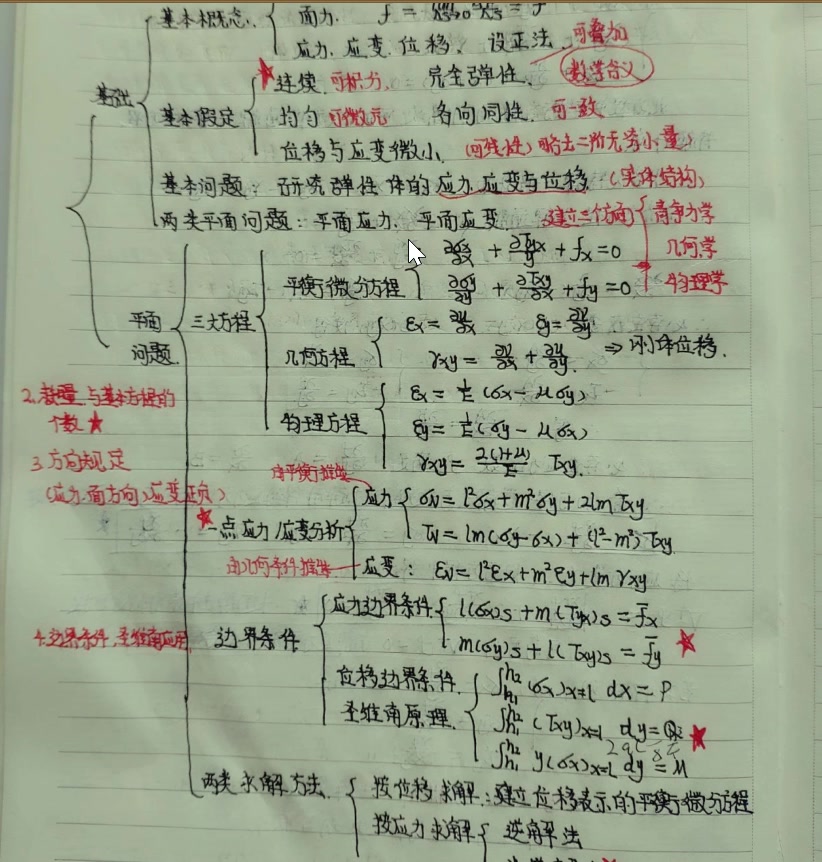 基本概念: 面力.
应力. 应变. 位移. 设正法. 可叠加
基础
基本假定
★连续. 可积分. 完全弹性. 数学含义
均匀 可微元 各向同性. 可一致
位移与应变微小. (可线性) 略去二阶无穷小量
基本问题: 研究弹性体的应力. 应变与位移 (实体结构)
两类平面问题: 平面应力. 平面应变 建立三个方面 静力学
几何学
物理学
平面问题
三大方程
平衡微分方程
∂σx/∂x + ∂τyx/y + fx = 0
∂σy/∂y + ∂τxy/∂x + fy = 0
几何方程
εx = ∂u/∂x εy = ∂v/∂y
γxy = ∂v/∂x + ∂u/∂y. ⇒ 刚体位移.
物理方程
εx = 1/E (σx - μσy)
εy = 1/E (σy - μσx)
γxy = 2(1+μ)/E τxy.
2. 与基本方程的
个数 ★
3. 方向规定
(应力.面方向) 应变正负)
★一点应力/应变分析
应力
σN = l²σx + m²σy + 2lm τxy
τN = lm(σy - σx) + (l² - m²) τxy
应变: εN = l²εx + m²εy + lm γxy
4. 边界条件. 圣维南应用
边界条件
应力边界条件
l(σx)s + m(τyx)s = f̄x
m(σy)s + l(τxy)s = f̄y ★
位移边界条件.
圣维南原理.
∫h₁^h₂ (σx)x=l dx = P
∫h₁^h₂ (τxy)x=l dy = Q ★
∫h₁^h₂ y(σx)x=l dy = M
两类求解方法.
按位移求解: 建立位移表示的平衡微分方程
按应力求解 逆解法